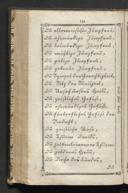 Du allerreineste Jungfrau,
Du ehrwürdige Jungfrau,
Du lobwürdige Jungfrau,
Du mächtige Jungfrau,
Du gütige Jungfrau,
Du getreue Jungfrau,
Du Spiegel der Gerechtigkeit,
Du Sitz der Weisheit,
Du Ursach unsers Heils,
Du geistliches Gefäß,
Du ehrwürdiges Gefäß,
Du fürtreffliches Gefäß der
Andacht,
Du geistliche Rose,
Du Thurm Davids,
Du helfenbeinerner Thurm,
Du goldenes Haus,
Du Arche des Bundes,